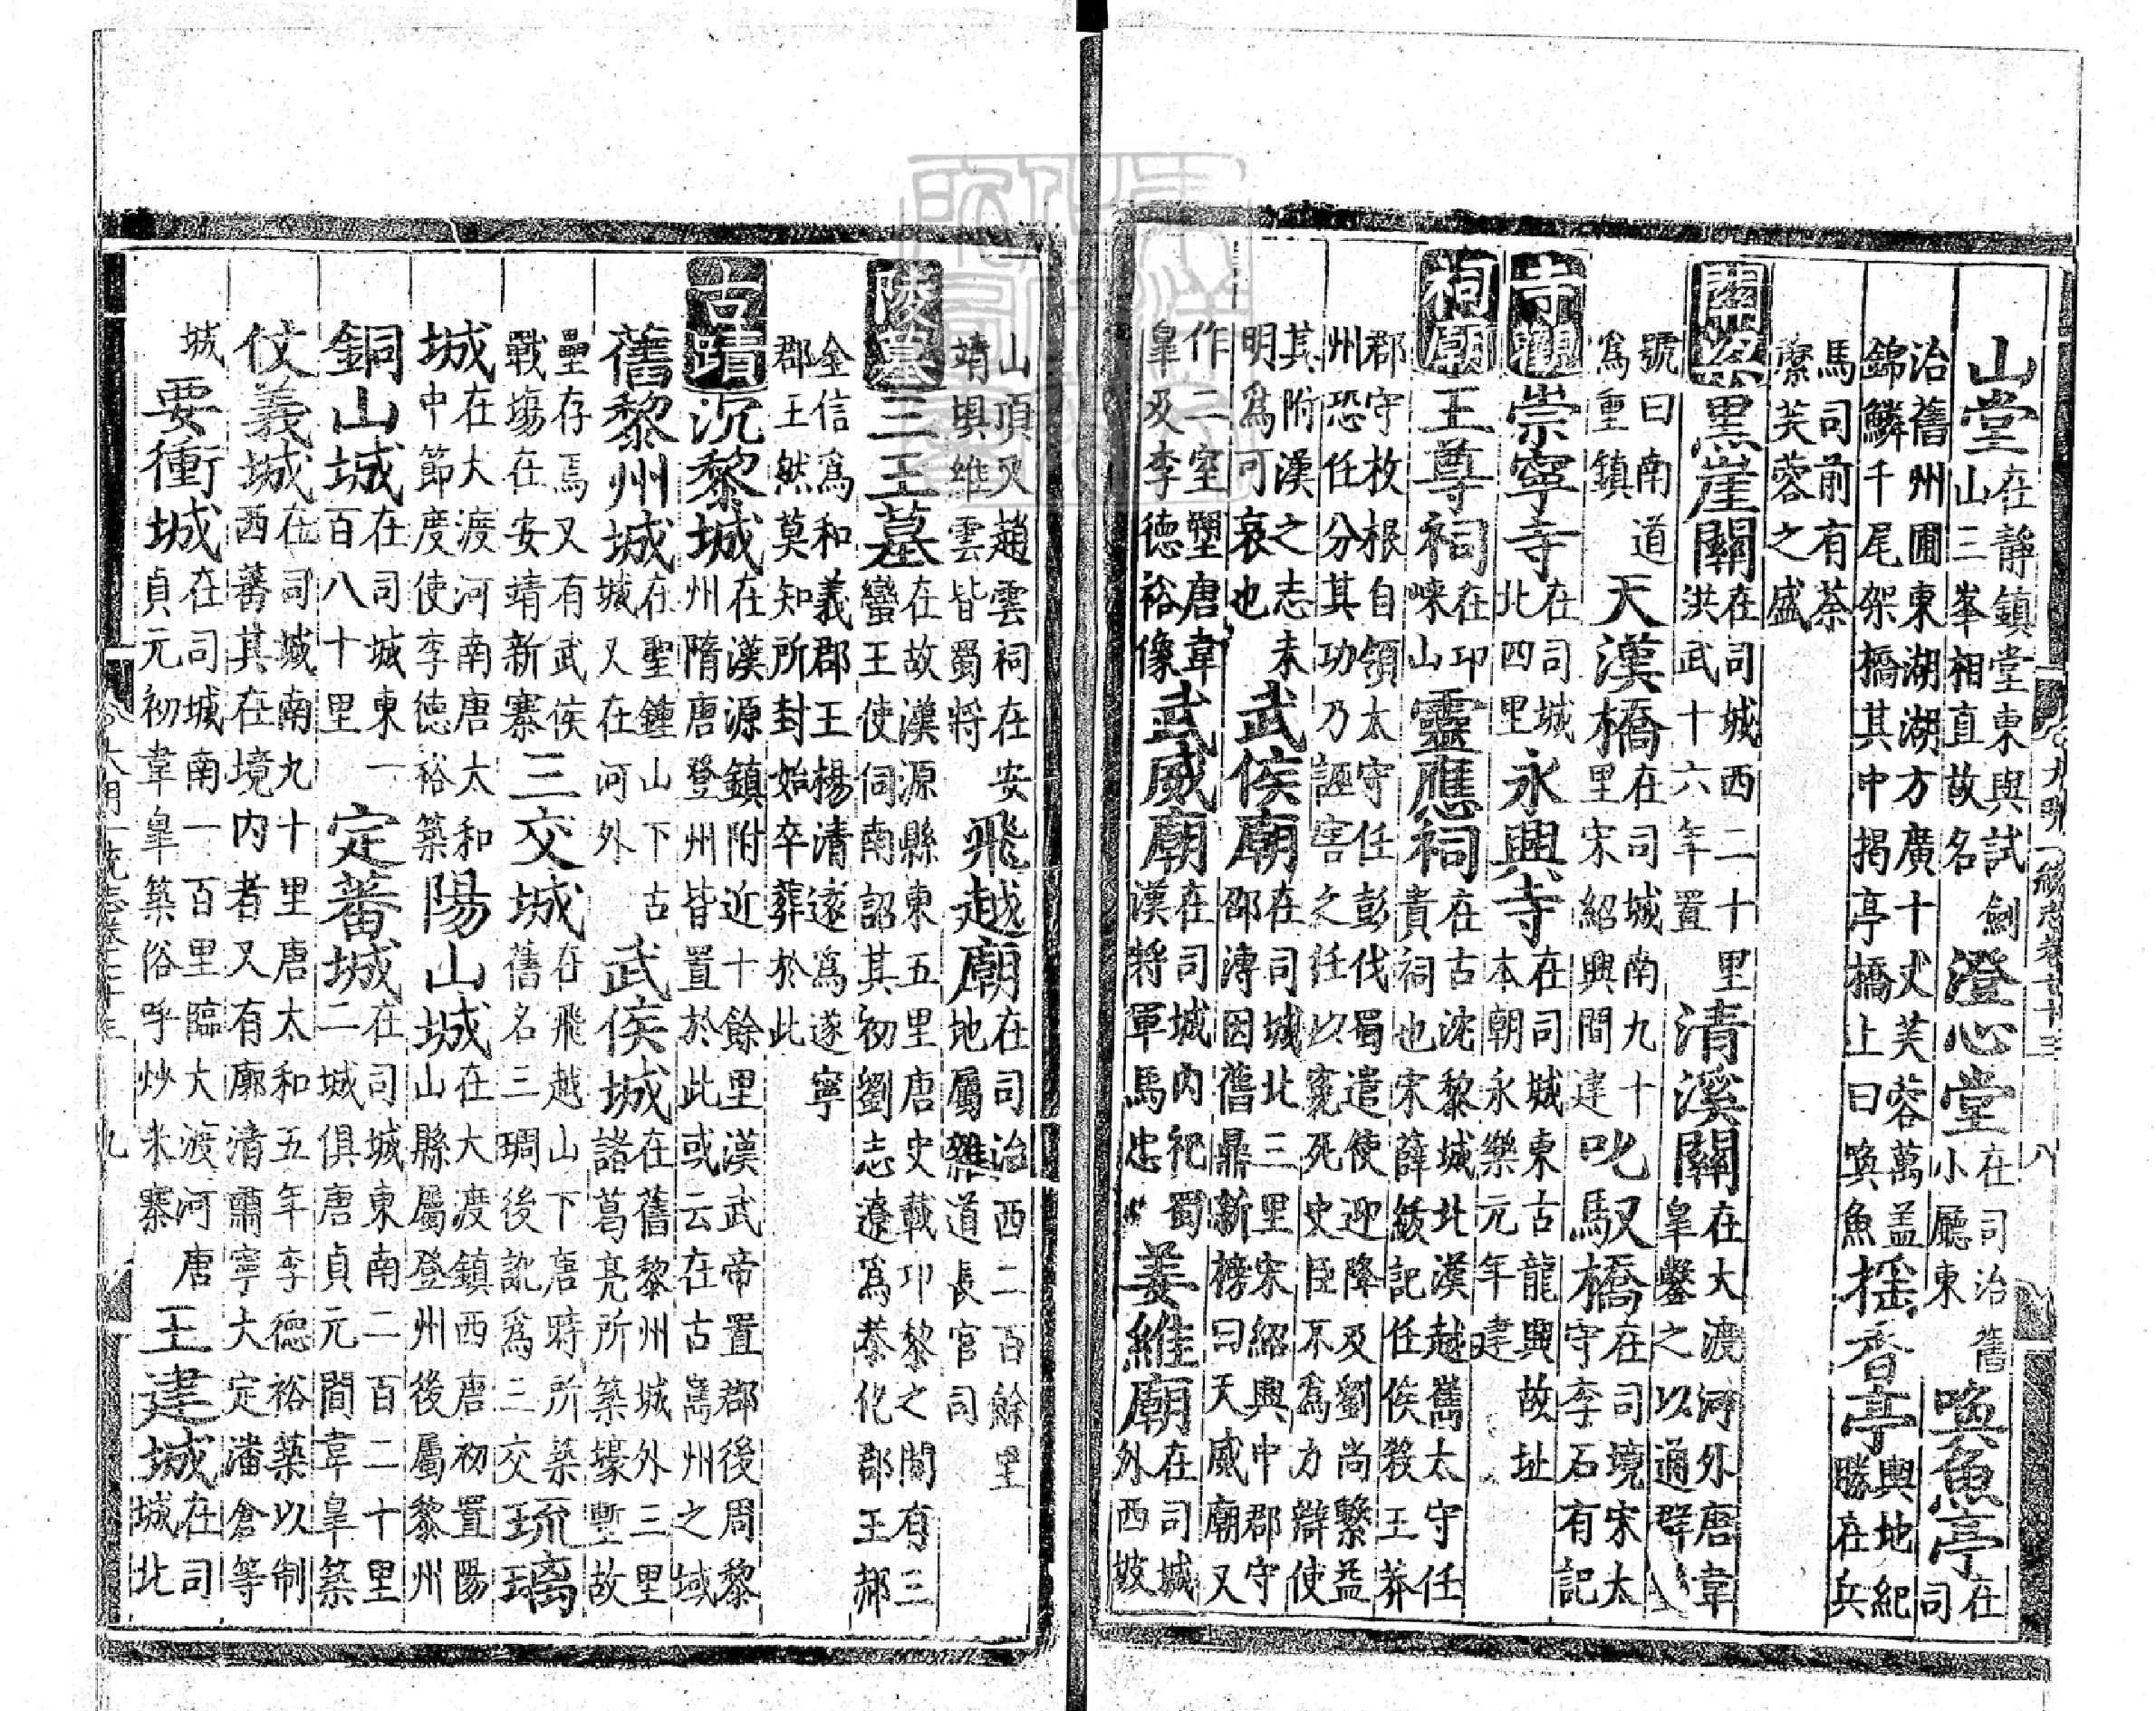 山堂在靜鎮堂東與試劍山三峯相直故名 澄心堂在司治舊小廳東 喚魚亭在司
治舊州圃東湖湖方廣十丈芙蓉萬盖錦鱗千尾架橋其中揭亭橋上曰喚魚 揺香亭輿地紀勝在兵
馬司前有荼䕷芙蓉之盛
關梁 黑崖關在司城西二十里洪武十六年置 清溪關在大渡河外唐韋皐鑿之以通群
號曰南道爲重鎮 天漢橋在司城南九十里宋紹興間建 叱馭橋在司境宋太守李石有記
寺觀 崇寧寺在司城北四里 永興寺在司城東古龍興故址本朝永樂元年建
祠廟 王尊祠在邛崍山 靈應祠在古沈黎城北漢越嶲太守任貴祠也宋薛紱記任侯殺王莽
郡守枚根自領太守任彭伐蜀遣使迎降及劉尚擊益州恐任分其功乃誣害之任以寃死史臣不爲力辯使
其附漢之志未明爲可哀也 武侯廟在司城北三里宋紹興中郡守邵溥因舊鼎新榜曰天威廟又
作二室塑唐韋皐及李德裕像 武威廟在司城内祀蜀漢將軍馬忠 姜維廟在司城外西坡
大明一統志卷七十三 八
山頂又趙雲祠在安靖堡維雲皆蜀將 飛越廟在司治西二百餘里地屬雜道長官司
陵墓 三王墓在故漢源縣東五里唐史載邛黎之間有三蠻王使伺南詔其初劉志遼爲恭化郡王郝
全信爲和義郡王楊清遠爲遂寧郡王然莫知所封始卒葬於此
古蹟 沉黎城在漢源鎮附近十餘里漢武帝置郡後周黎州隋唐登州皆置於此或云在古嶲州之域
舊黎州城在聖鐘山下古城又在河外 武侯城在舊黎州城外三里諸葛亮所築壕塹故
壘存焉又有武侯戰塲在安靖新寨 三交城在飛越山下唐時所築舊名三琱後訛爲三交 琉璃
城在大渡河南唐太和中節度使李德裕築 陽山城在大渡鎮西唐初置陽山縣屬登州後屬黎州
銅山城在司城東一百八十里 定蕃城在司城東南二百二十里二城俱唐貞元間韋皐築
仗義城在司城南九十里唐太和五年李德裕築以制西蕃其在境内者又有廓清肅寧大定潘倉等
城 要衝城在司城南一百里臨大渡河唐貞元初韋皐築俗呼炒米寨 王建城在司城北
大明一統志卷七十三 九